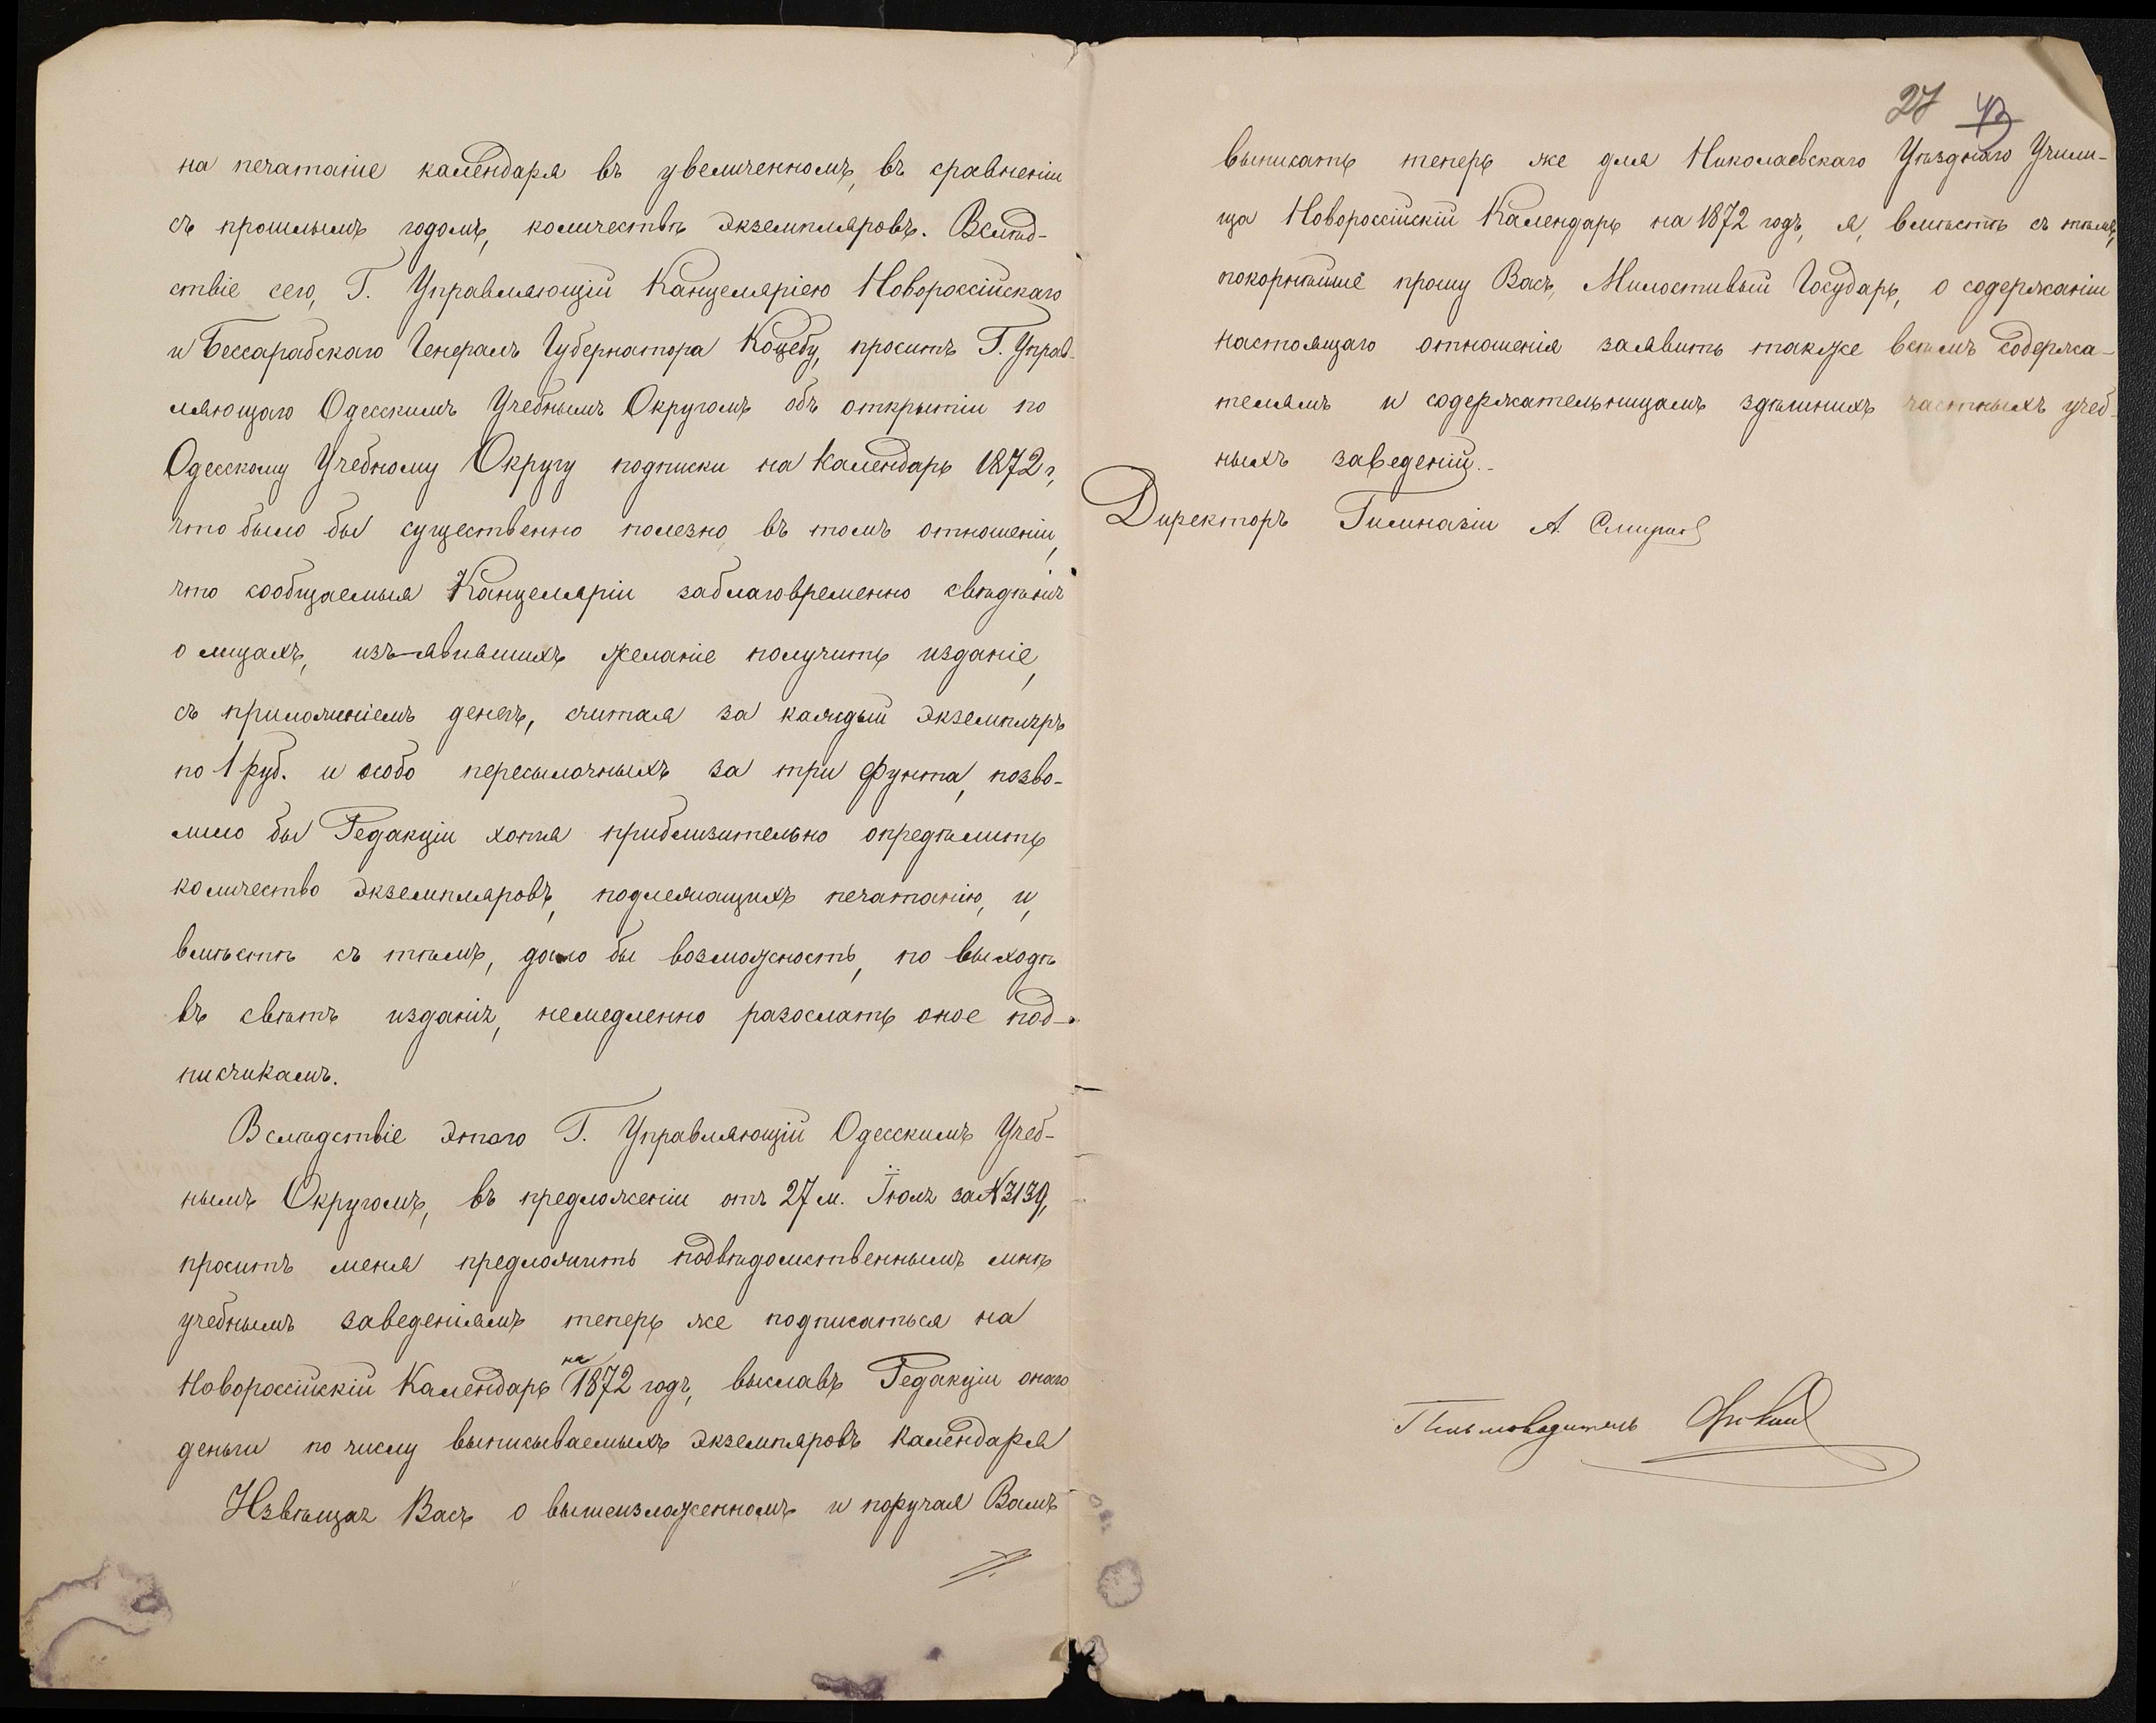 на печатаніе календаря въ увеличенномъ, въ сравненіи
съ прошлымъ годомъ, количествѣ экземпляровъ. Вслѣд-
ствіе сего, Г. Управляющій Канцеляріею Новороссійскаго
и Бессарабскаго Генералъ Губернатора Коцебу, проситъ Г. Управ-
ляющаго Одесскимъ Учебнымъ Округомъ объ открытіи по
Одесскому Учебному Округу подписки на Календарь 1872 г,
что было бы существенно полезно въ томъ отношеніи,
что сообщаемыя Канцеляріи заблаговременно свѣдѣнія
о лицахъ, изъявившихъ желаніе получить изданіе,
съ приложеніемъ денегъ, считая за каждый экземпляръ
по 1 руб. и особо пересылочныхъ за три фунта, позво-
лило бы Редакціи хотя приблизительно опредѣлить
количество экземпляровъ, подлежащихъ печатанію, и,
вмѣстѣ съ тѣмъ, дало бы возможность, по выходѣ
въ свѣтъ изданія, немедленно разослать оное под-
писчикамъ.
Вслѣдствіе этого Г. Управляющій Одесскимъ Учеб-
нымъ Округомъ, въ предложеніи отъ 27 м. Іюля за № 3139,
проситъ меня предложить подвѣдомственнымъ мнѣ
учебнымъ заведеніямъ теперь же подписаться на
Новороссійскій Календарь на 1872 годъ, выславъ Редакціи онаго
деньги по числу выписываемыхъ экземпляровъ календаря
Извѣщая Васъ о вышеизложенномъ и поручая Вамъ
27 43
выписать теперь же для Николаевскаго Уѣзднаго Учили-
ща Новороссійскій Календарь на 1872 годъ, я, вмѣстѣ съ тѣмъ,
покорнѣйше прошу Васъ, Милостивый Государь, о содержаніи
настоящаго отношенія заявить также всѣмъ содержа-
телямъ и содержательницамъ здѣшнихъ частныхъ учеб-
ныхъ заведеній.
Директоръ Гимназіи А. Смирнов
Письмоводитель